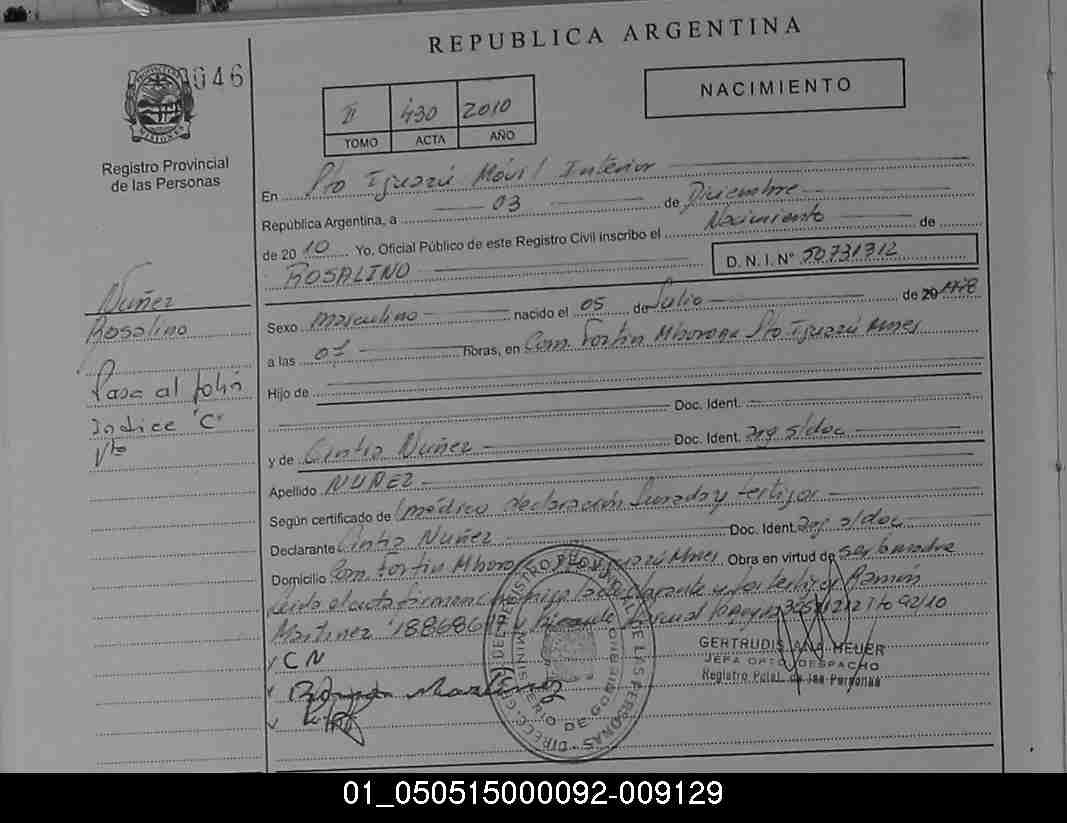 REPUBLICA ARGENTINA
046
Registro Provincial
de las Personas
II 430 2010
TOMO ACTA AÑO
NACIMIENTO
En Pto Iguazú Móvil Interior
República Argentina, a 03 de Diciembre
de 2010 Yo, Oficial Público de este Registro Civil inscribo el Nacimiento de
ROSALINO D. N. I. N° 50731312
Sexo masculino nacido el 05 de Julio de 20
a las 07 horas, en Com. Fortin Mbororé Pto Iguazú Mnes
Hijo de
Doc. Ident.
y de Cintia Nuñez Doc. Ident. Arg s/doc
Apellido NUÑEZ
Según certificado de médico declaración Jurada y testigos
Declarante Cintia Nuñez Doc. Ident. Arg s/doc
Domicilio Com. Fortin Mboro Mnes Obra en virtud de ser la madre
Leida el acta firman conmigo la declarante y los testigos Ramón
Martinez
C N
Ramon Martinez
GERTRUDIS ANA HEUER
JEFA DPTO DESPACHO
Registro Pcial. de las Personas
Nuñez
Rosalino
Pasa al folio
Indice "C"
Vto
MINISTERIO DE GOBIERNO
01_050515000092-009129